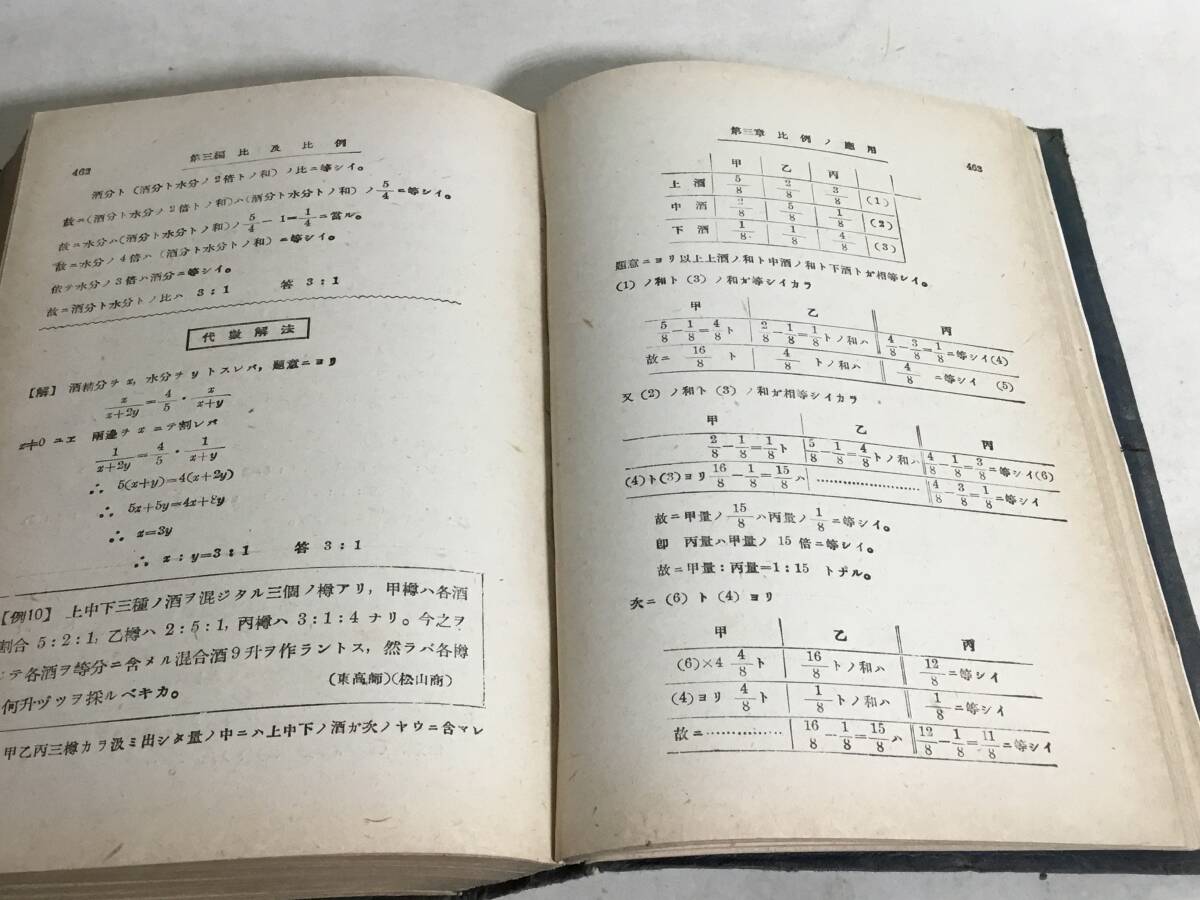 第三編 比及比例
462
酒分ト(酒分ト水分ノ2倍トノ和)ノ比ニ等シイ。
故ニ(酒分ト水分ノ2倍トノ和)ハ(酒分ト水分トノ和)ノ5/4ニ等シイ。
故ニ水分ハ(酒分ト水分トノ和)ノ5/4−1=1/4ニ當ル。
故ニ水分ノ4倍ハ(酒分ト水分トノ和)ニ等シイ。
依テ水分ノ3倍ハ酒分ニ等シイ。
故ニ酒分ト水分トノ比ハ 3:1 答 3:1
代數解法
[解] 酒精分ヲx, 水分ヲyトスレバ, 題意ニヨリ
x/(x+2y)=4/5・x/(x+y)
x≠0 ニエ 兩邊ヲxニテ割レバ
1/(x+2y)=4/5・1/(x+y)
∴ 5(x+y)=4(x+2y)
∴ 5x+5y=4x+8y
∴ x=3y
∴ x:y=3:1 答 3:1
【例10】 上中下三種ノ酒ヲ混ジタル三個ノ樽アリ, 甲樽ハ各酒
割合 5:2:1, 乙樽ハ 2:5:1, 丙樽ハ 3:1:4 ナリ。今之ヲ
テ各酒ヲ等分ニ含メル混合酒9升ヲ作ラントス, 然ラバ各樽
何升ヅツヲ採ルベキカ。 (東高師)(松山商)
甲乙丙三樽カラ汲ミ出シタ量ノ中ニハ上中下ノ酒ガ次ノヤウニ含マレ
第三章 比例ノ應用
463
甲 乙 丙
上酒 5/8 2/8 3/8 (1)
中酒 2/8 5/8 1/8 (2)
下酒 1/8 1/8 4/8 (3)
題意ニヨリ以上上酒ノ和ト中酒ノ和ト下酒トガ相等シイ。
(1)ノ和ト(3)ノ和ガ等シイカラ
甲 乙 丙
5/8−1/8=4/8ト 2/8−1/8=1/8トノ和ハ 4/8−3/8=1/8ニ等シイ(4)
故ニ 16/8 ト 4/8 トノ和ハ 4/8 ニ等シイ (5)
又(2)ノ和ト(3)ノ和ガ相等シイカラ
甲 乙 丙
2/8−1/8=1/8ト 5/8−1/8=4/8トノ和ハ 4/8−1/8=3/8ニ等シイ(6)
(4)ト(3)ヨリ 16/8−1/8=15/8ハ ………………… 4/8 3/8=1/8ニ等シイ
故ニ甲量ノ15/8ハ丙量ノ1/8ニ等シイ。
即 丙量ハ甲量ノ15倍ニ等シイ。
故ニ甲量:丙量=1:15 トナル。
次ニ(6)ト(4)ヨリ
甲 乙 丙
(6)×4 4/8ト 16/8トノ和ハ 12/8ニ等シイ
(4)ヨリ 4/8ト 1/8トノ和ハ 1/8ニ等シイ
故ニ………… 16/8−1/8=15/8ハ 12/8−1/8=11/8ニ等シイ